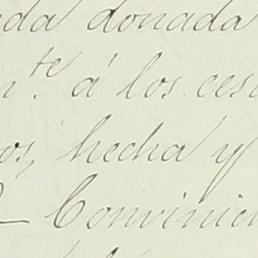 da donada
n.te á los ces
os, hecha y
Convinien